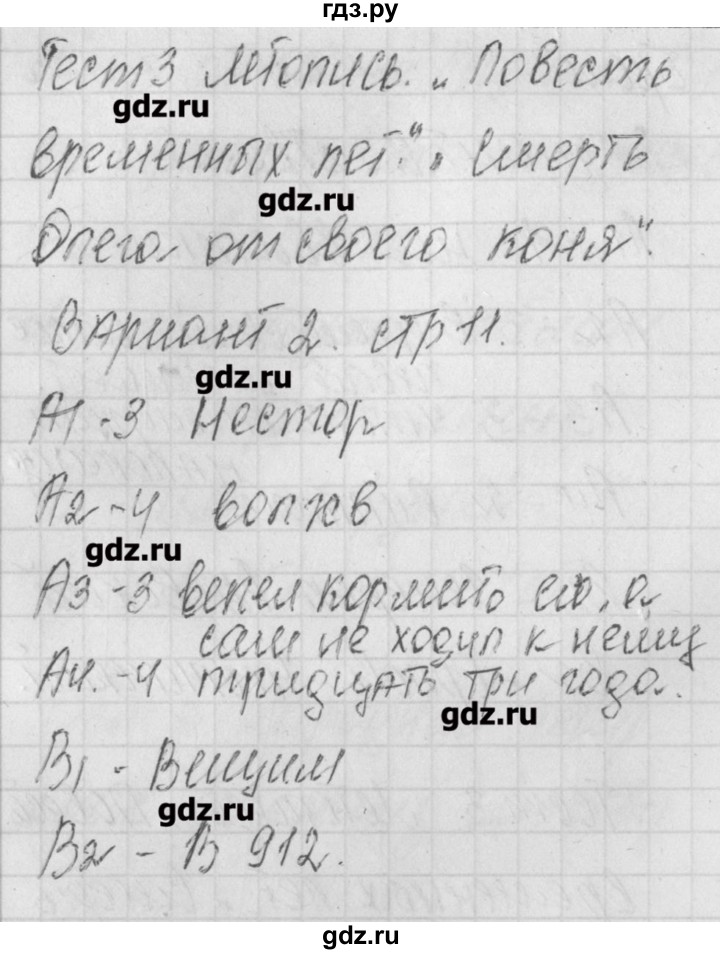 гдз.ру
Тест 3 Летопись. „Повесть
gdz.ru
временных лет." „Смерть
gdz.ru
Олега от своего коня".
Вариант 2. стр 11.
gdz.ru
А1-3 Нестор
А2-4 волхв
gdz.ru
А3-3 велел кормить его, а
сам не ходил к нему
А4.-4 тридцать три года.
gdz.ru
В1 - Вещим
gdz.ru
В2 - В 912.
gdz.ru